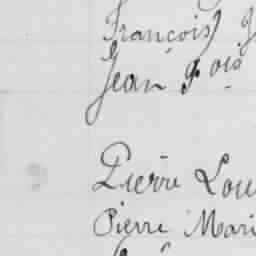 François J
Jean fois
Pierre Lou
Pierre Mari